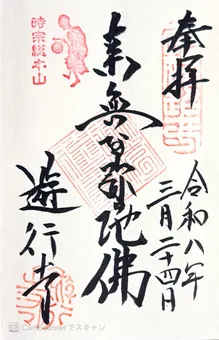 奉拝
令和八年
三月二十四日
南無阿弥陀佛
遊行寺
時宗総本山
CamScanner でスキャン